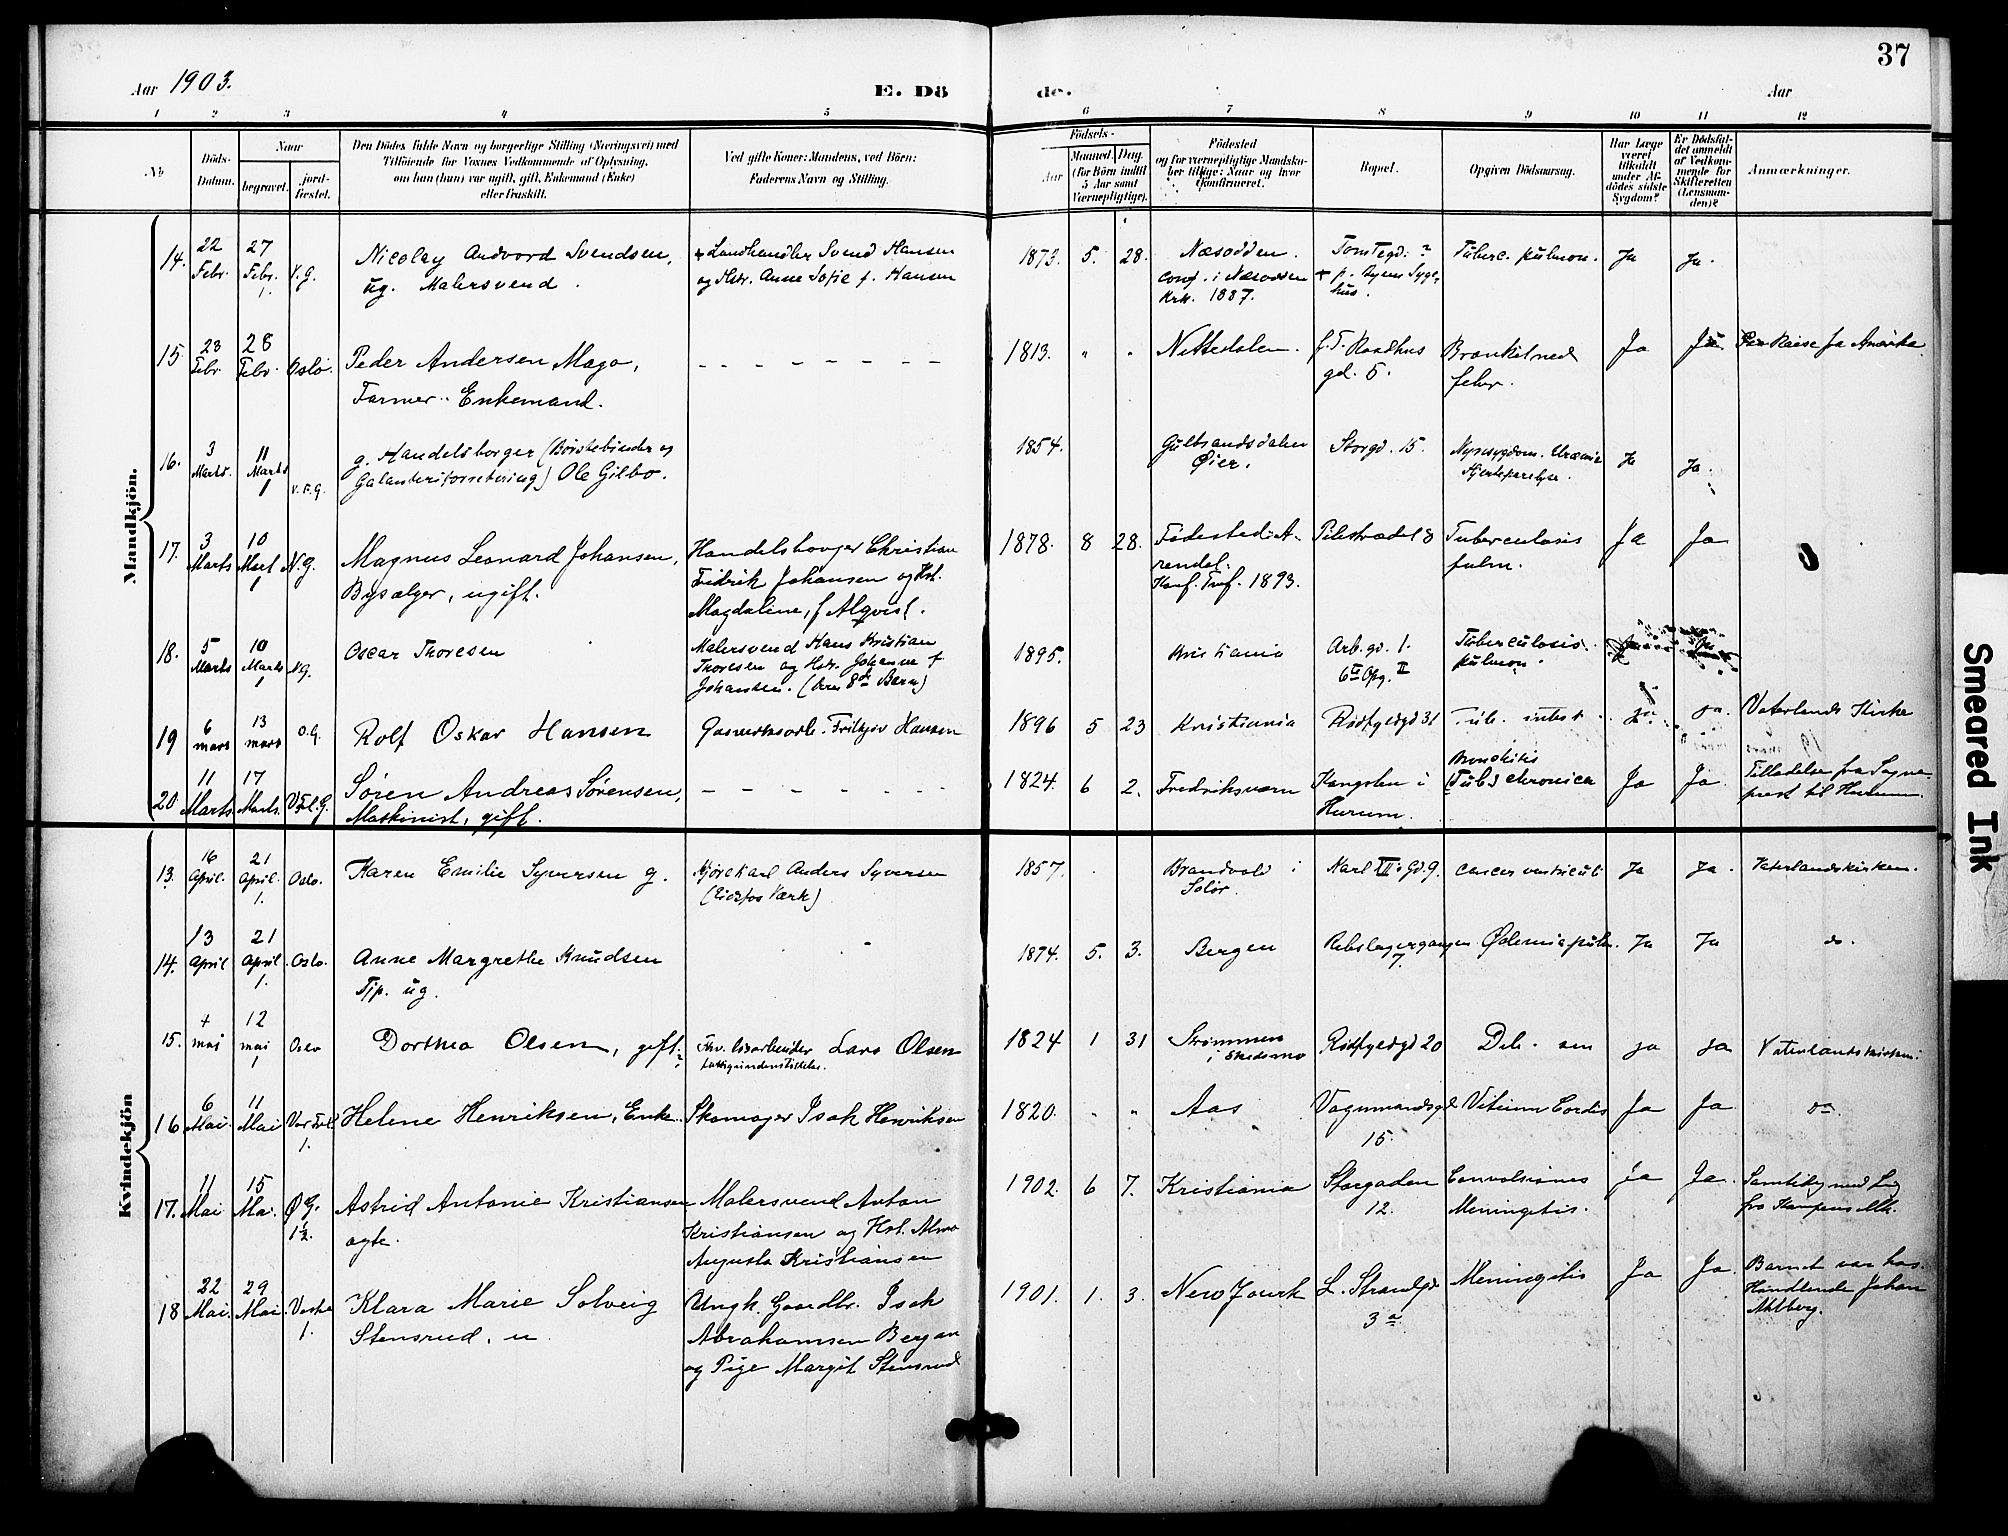 37
Aar 1903.
E. Dö
de.
Aar
1 2 3 4 5 6 7 8 9 10 11 12
No
Döds-Datum.
Naar
begravet.
jord-fæstet.
Den Dödes fulde Navn og borgerlige Stilling (Næringsvei) med
Tilföiende for Voxnes Vedkommende af Oplysning,
om han (hun) var ugift, gift, Enkemand (Enke)
eller fraskilt.
Ved gifte Koner: Mandens, ved Börn:
Faderens Navn og Stilling.
Födsels-
Aar
Maaned. Dag.
(for Börn indtil
5 Aar samt
Værnepligtige).
Födested
og for værnepligtige Mandsku-
ber tillige: Naar og hvor
Confirmeret.
Bopæl.
Opgiven Dödsaarsag.
Har Læge
været
tilkaldt
under Af-
dödes sidste
Sygdom?
Er Dödsfal-
det anmeldt
af Vedkom-
mende for
Skifteretten
(Lensman-
den)?
Anmærkninger.
Mandkjön.
14. 22 Febr. 27 Febr. 1 V.G. Nicolay Andvord Svendsen, ug. Malersvend. + Landhandler Svend Hansen og Hstr. Anne Sofie f. Hansen 1873. 5. 28. Næsodden. Conf. i Næsodden Krk. 1887. Tuberc. pulmon. Ja Ja.
15 23 Febr. 28 Febr. Oslo. Peder Andersen Mago, Farmer. Enkemand. - - - - - - - 1813. " " Nittedalen. f.T. Raadhus gd. 5. Ja Ja Paa Reise fra Amerika
16. 3 Marts. 11 Marts 1 V.F.G. g. Handelsborger (Børstebinder og Galanteriforretning) Ole Gilbo. 1854. Gulbrandsdalen Øier. Storgd. 15. Nyresygdom. Uræmie Hjerteparelyse. Ja Ja.
17. 3 Marts 10 Mart 1 N.G. Magnus Leonard Johansen, Bysælger, ugift. Handelsborger Christian Fridrik Johansen og Hst. Magdaline, f Alqvist. 1878. 8 28. Fødested: Arendal. Konf. Tref. 1893. Pilestrædet 8 Tuberculosis pulm. Ja Ja
18. 5 Marts 10 Marts 1 N.G. Oscar Thoresen Malersvend Hans Kristian Thoresen og Hstr. Johanne f Johansen. (Deres 8de Barn) 1895. Kristiania Arb.gd. 1. 6te Opg. II Tuberculosis pulmon. Ja Ja
19 6 mars 13 mars O.G. Rolf Oskar Hansen Gasverksarb. Fritjov Hansen 1896 5 23 Kristiania Rødfyldgd 31 Tub. intest. Ja. Ja. Vaterlands Kirke
20 11 Marts 17 Marts. V.Frl.G. Søren Andreas Sørensen, Maskinist, gift. - - - - - - - 1824. 6 2. Fredriksværn Kangslen i Hurum. Bronkitis (Tub) chronica Ja Ja. Tilladelse fra Sogneprest til Hurum.
Kvindekjön
13. 16 April. 21 April. 1. Oslo. Karen Emilie Syversen g. Kjørekarl Anders Syversen (Eidsfos Værk) 1857. Brandvold i Solør. Karl XII's Gd. 9. Cancer ventriculi Ja Ja. Vaterlandskirken.
14. 13 April 21 April 1. Oslo. Anne Margrethe Knudsen Tjp. ug. 1874. 5. 3. Bergen Rebslagergangen 7. Ødemia pulm. Ja Ja do.
15. + mai 12 mai 1 Oslo Dorthea Olsen, gift. Lars Olsen Fattigunderstøttelse. 1824 1 31 Strømmen i Skedsmo Rødfyldgd 20 Deb. sen ja ja Vaterlandskirken.
16 6 Mai. 11 Mai Vor Frl. 1. Helene Henriksen, Enke. Skomager Isak Henriksen 1820. " " Aas Vognmandsgd 15. Vitium Cordis Ja Ja do.
17. 11 Mai 15 Mai. Ø G. 1½. Astrid Antonie Kristiansen ægte. Malersvend Anton Kristiansen og Hst. Alma Augusta Kristiansen 1902. 6 7. Kristiania Storgaden 12. Convulsiones Meningitis. Ja Ja. Samtidig med Lig fra Kampens Mk.
18 22 Mai. 29 Mai Vestre 1. Klara Marie Solveig Stensrud, u. Ungk. Gaardbr. Isak Abrahamsen Bergan og Pige Margit Stensrud 1901. 1. 3. New Jourk L. Strandgd 3a Meningitis Ja Ja. Barnet var hos Handlende Johan Ahlberg.
Smeared Ink